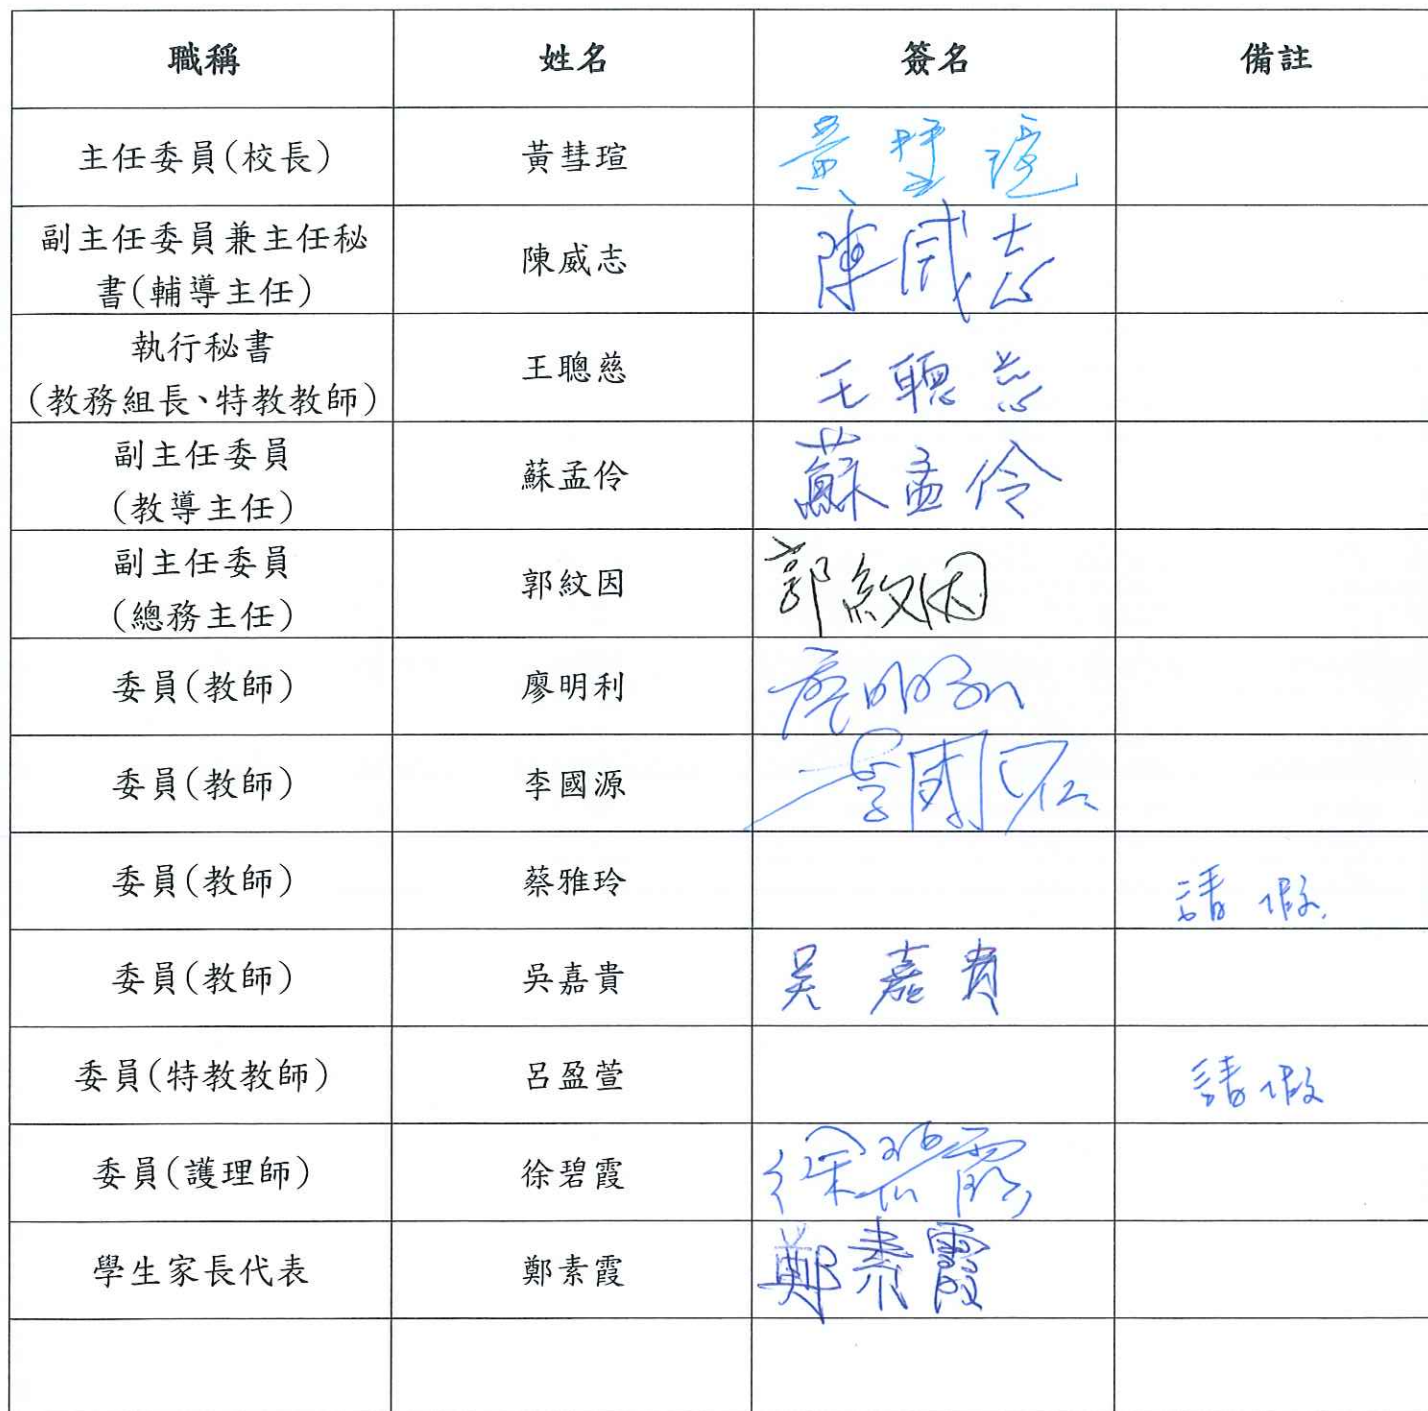 職稱 姓名 簽名 備註
主任委員(校長) 黃彗瑄 黃彗瑄
副主任委員兼主任秘
書(輔導主任) 陳威志 陳威志
執行秘書
(教務組長、特教教師) 王聰慈 王聰慈
副主任委員
(教導主任) 蘇孟伶 蘇孟伶
副主任委員
(總務主任) 郭紋因 郭紋因
委員(教師) 廖明利 廖明利
委員(教師) 李國源 李國源
委員(教師) 蔡雅玲 請假
委員(教師) 吳嘉貴 吳嘉貴
委員(特教教師) 呂盈萱 請假
委員(護理師) 徐碧霞 徐碧霞
學生家長代表 鄭素霞 鄭素霞